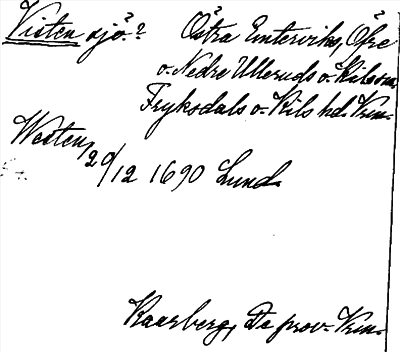 Visten sjö? Östra Emterviks, Öfre
o. Nedre Ulleruds o. Kils sn,
Fryksdals o. Kils hd. Vrm.
Westen, 29/12 1690 Lund.
Kaarberg, De prov. Vrm.